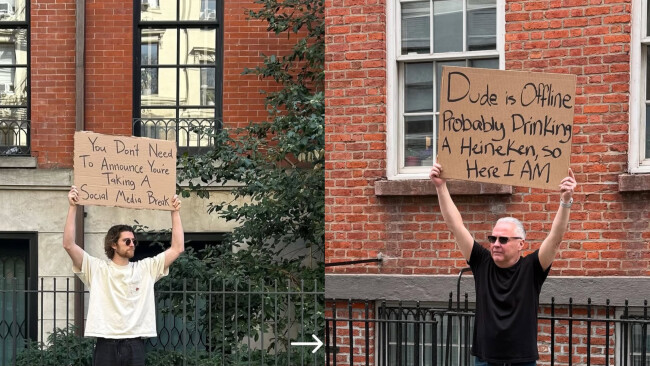 You Don't Need
To Announce You're
Taking A
Social Media Break
Dude is Offline
Probably Drinking
A Heineken, so
Here I AM